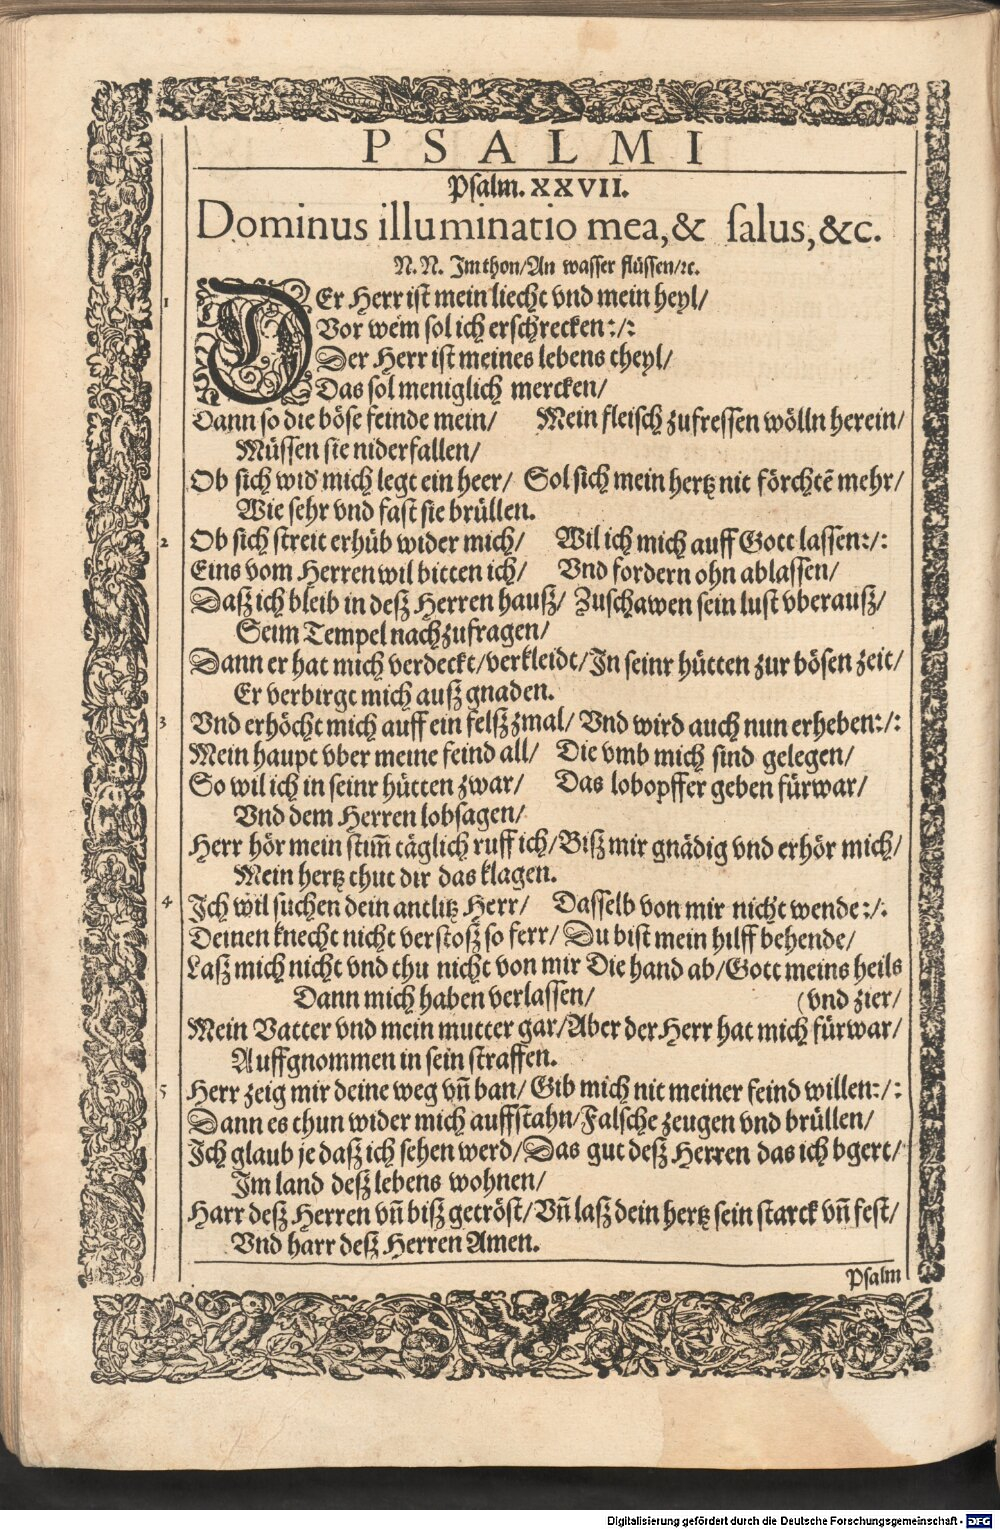 PSALMI
Psalm. XXVII.
Dominus illuminatio mea, & salus, &c.
N. N. Im thon/An wasser flüssen/ꝛc.
1 DEr Herr ist mein liecht vnd mein heyl/
Vor wem sol ich erschrecken:/:
Der Herr ist meines lebens theyl/
Das sol meniglich mercken/
Dann so die böse feinde mein/ Mein fleisch zufressen wölln herein/
Müssen sie niderfallen/
Ob sich wid' mich legt ein heer/ Sol sich mein hertz nit förchtē mehr/
Wie sehr vnd fast sie brüllen.
2 Ob sich streit erhüb wider mich/ Wil ich mich auff Gott lassen:/:
Eins vom Herren wil bitten ich/ Vnd fordern ohn ablassen/
Daß ich bleib in deß Herren hauß/ Zuschawen sein lust vberauß/
Seim Tempel nachzufragen/
Dann er hat mich verdeckt/verkleidt/In seinr hütten zur bösen zeit/
Er verbirgt mich auß gnaden.
3 Vnd erhöcht mich auff ein felß zmal/ Vnd wird auch nun erheben:/:
Mein haupt vber meine feind all/ Die vmb mich sind gelegen/
So wil ich in seinr hütten zwar/ Das lobopffer geben fürwar/
Vnd dem Herren lobsagen/
Herr hör mein stim̄ täglich ruff ich/Biß mir gnädig vnd erhör mich/
Mein hertz thut dir das klagen.
4 Ich wil suchen dein antlitz Herr/ Dasselb von mir nicht wende:/:
Deinen knecht nicht verstoß so ferr/ Du bist mein hilff behende/
Laß mich nicht vnd thu nicht von mir Die hand ab/Gott meins heils
Dann mich haben verlassen/ (vnd zier/
Mein Vatter vnd mein mutter gar/Aber der Herr hat mich fürwar/
Auffgnommen in sein straffen.
5 Herr zeig mir deine weg vn̄ ban/ Gib mich nit meiner feind willen:/:
Dann es thun wider mich auffstahn/Falsche zeugen vnd brüllen/
Ich glaub je daß ich sehen werd/Das gut deß Herren das ich bgert/
Im land deß lebens wohnen/
Harr deß Herren vn̄ biß getröst/Vn̄ laß dein hertz sein starck vn̄ fest/
Vnd harr deß Herren Amen.
Psalm
Digitalisierung gefördert durch die Deutsche Forschungsgemeinschaft - DFG